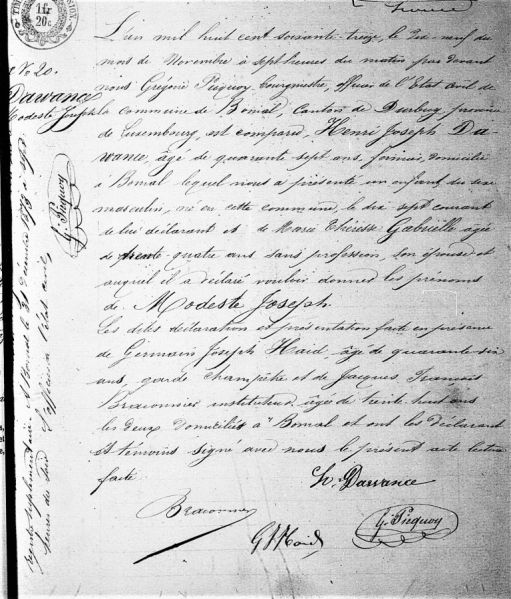 1 fr
20c
L'an mil huit cent soixante-treize, le dix-neuf du
mois de Novembre à sept heures du matin par devant
nous Grégoire Picquoy bourgmestre, officier de l'Etat civil de
la commune de Bomal, Canton de Durbuy, province
de Luxembourg, est comparu, Henri Joseph Da-
wance, âgé de quarante sept ans, domicilié
à Bomal lequel nous a présenté un enfant du sexe
masculin, né en cette commune, le dix sept courant
de lui déclarant et de Marie Thérèse Gabrielle âgée
de trente quatre ans sans profession, son épouse et
auquel il a déclaré vouloir donner les prénoms
de Modeste Joseph.
Les dites déclaration et présentation faite en présence
de Germain Joseph Haid, âgé de quarante six
ans, garde champêtre et de Jacques François
Braconnier instituteur, âgé de trente huit ans
les deux domiciliés à Bomal et ont les déclarant
et témoins signé avec nous le présent acte lecture
faite
h. Dawance
Braconnier
G J Haid
G. Picquoy
No 20.
Dawance
Modeste Joseph
G. Picquoy
à Bomal le 31 décembre 1873 à sept
heures du l'officier de l'état civil,